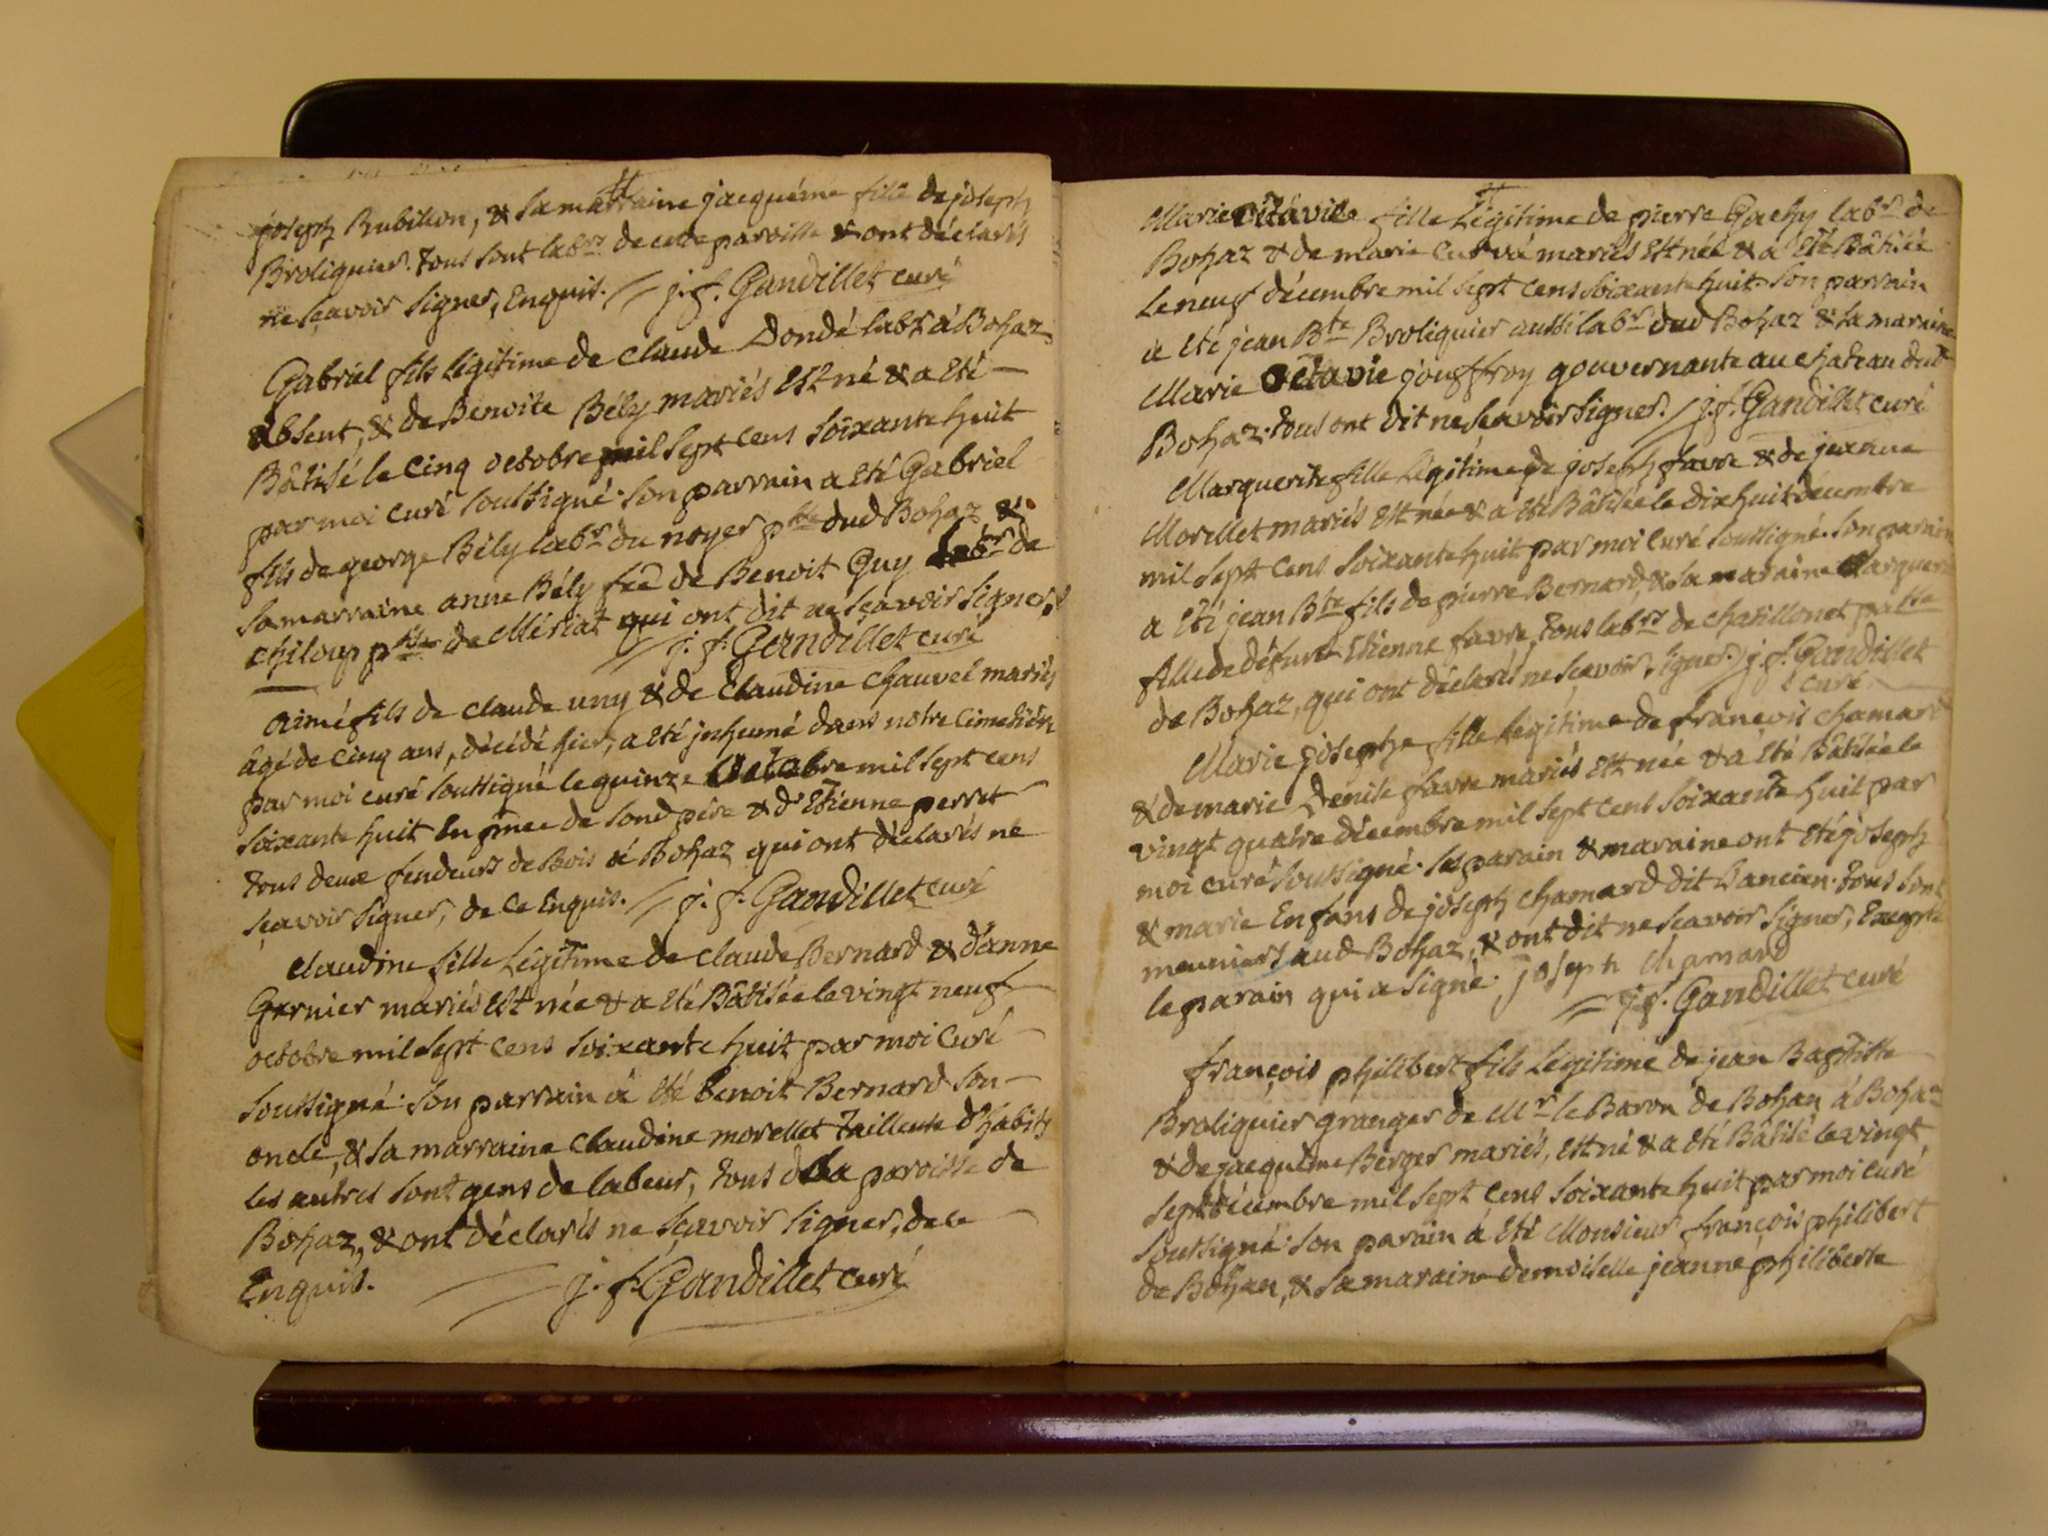 joseph Rubillon, & sa marraine jacquéme fille de joseph
Broliquier. tous sont labrs de cette paroisse & ont déclarés
ne sçavoir signer, Enquis. j. f. Gandillet curé
Gabriel fils légitime de Claude Dondé labr à Bohaz
absent, & de Benoite Bély mariés Est né & a Eté
Bâtisé le Cinq octobre mil sept cens soixante huit
par moi curé soussigné. son parrain a Eté Gabriel
fils de george Bély labr du noyer psse dud Bohaz &
sa marraine anne Bély fée de Benoit Guy labr de
chiloup psse de Mériat qui ont dit ne sçavoir signer,
j. f. Gandillet curé
aimé fils de claude uny & de Claudine Chauvel mariés
âgé de Cinq ans, décédé hier, a Eté jnhumé dans notre Cimetiére
par moi curé soussigné le quinze Octobre mil sept cens
soixante huit En pnce de sond père & d'Etienne perret
tous deux fendeurs de Bois à Bohaz qui ont déclarés ne
sçavoir signer, de ce Enquis. j. f. Gandillet curé
Claudine fille Légitime de Claude Bernard & d'anne
Garnier mariés Est née & a Eté Bâtisée le vingt neuf
octobre mil sept cens soixante huit par moi Curé
soussigné. son parrain à Eté Benoit Bernard son
oncle, & sa marraine Claudine morellet Tailleute d'habits
les autres sont gens de labeur, tous de la paroisse de
Bohaz, & ont déclarés ne sçavoir signer, de ce
Enquis. j. f. Gandillet curé
Marie Octavie fille Légitime de pierre Gachy labr de
Bohaz & de marie Curvé mariés Est née & à Eté Bâtisée
Le neuf décembre mil sept cens soixante huit. son parrain
a Eté jean Bte Broliquier aussi labr dud Bohaz & sa maraine
Marie Octavie jouffroy gouvernante au chateau dud
Bohaz. tous ont dit ne sçavoir signer. j. f. Gandillet curé
Marguerite fille Légitime de joseph favre & de jeanne
Morellet mariés Est née & a Eté Bâtisée le dixhuit décembre
mil sept cens soixante huit par moi Curé soussigné. son parain
a Eté jean Bte fils de pierre Bernard, & sa maraine Marguerite
fille de défunt Etienne favre, tous labrs de chatillonet psse
de Bohaz, qui ont déclarés ne scavoir signer. j. f. Gandillet
curé
Marie josephe fille légitime de françois chamard
& de marie Denise favre mariés Est née & a Eté Bâtisée le
vingt quatre décembre mil sept cens soixante huit par
moi curé soussigné. ses parain & maraine ont Eté joseph
& marie Enfans de joseph chamard dit L'ancien. tous sont
meuniers aud Bohaz, & ont dit ne scavoir signer, Excepté
le parain qui a signé. joseph Chamard
j. f. Gandillet curé
françois philibert fils Légitime de jean Baptiste
Broliquier granger de Mr le Baron de Bohan à Bohaz
& de jacquéme Berger mariés, Est né & a Eté Bâtisé le vingt
sept décembre mil sept cens soixante huit par moi curé
soussigné. son parain à Eté Monsieur françois philibert
de Bohan, & sa maraine demoiselle jeanne philiberte